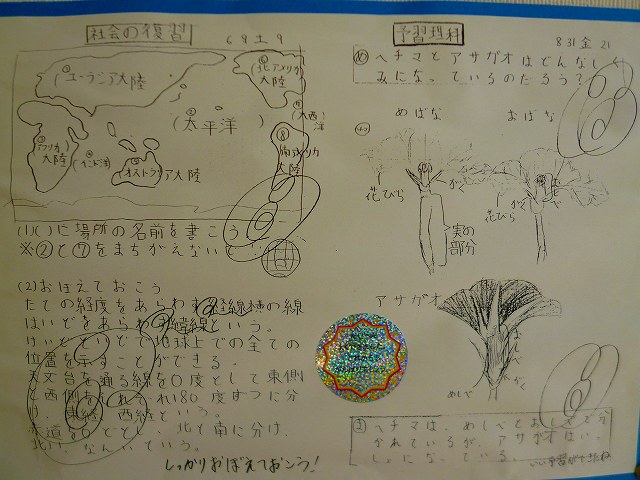 社会の復習
6 9 土 9
ユーラシア大陸
北アメリカ大陸
太平洋
大西洋
アフリカ大陸
インド洋
オーストラリア大陸
⑧
南アメリカ大陸
(1)( )に場所の名前を書こう
※②と⑦をまちがえない
(2)おぼえておこう
たての経度をあらわす 経線横の線
はいどをあらわす 緯線という。
けいどといどで地球上での全ての
位置を示すことができる。
天文台を通る線を0度として東側
と西側をそれぞれ180度ずつに分
け、東経、西経という。
赤道を0どとし、北と南に分け、
北い、なんいという。
しっかりおぼえておこう!
予習理科
8 31 金 21
め ヘチマとアサガオはどんなし
みにな、ているのだろう?
めばな
おばな
花びら
がく
実の部分
花びら
がく
アサガオ
めしべ
がく
ま ヘチマは、めしべとおしべで分
かれているが、アサガオはい、
しょにな、ている。